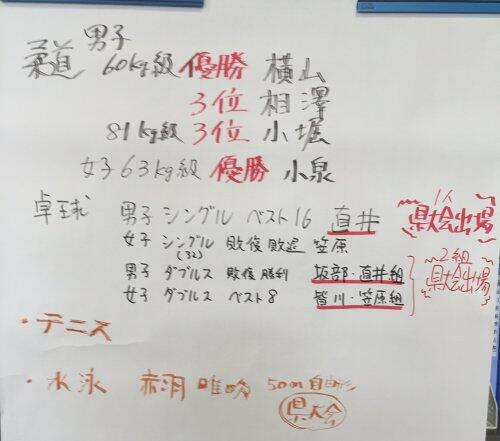 柔道 男子
60kg級 優勝 横山
3位 相澤
81kg級 3位 小堀
女子63kg級 優勝 小泉
卓球 男子 シングル ベスト16 直井 1人 県大会出場
女子 シングル 敗復敗退 笠原
(32)
男子 ダブルス 敗復勝利 坂部・直井組 2組
女子 ダブルス ベスト8 皆川・笠原組 県大会出場
・テニス
・水泳 赤羽 唯吹 50m自由形
県大会